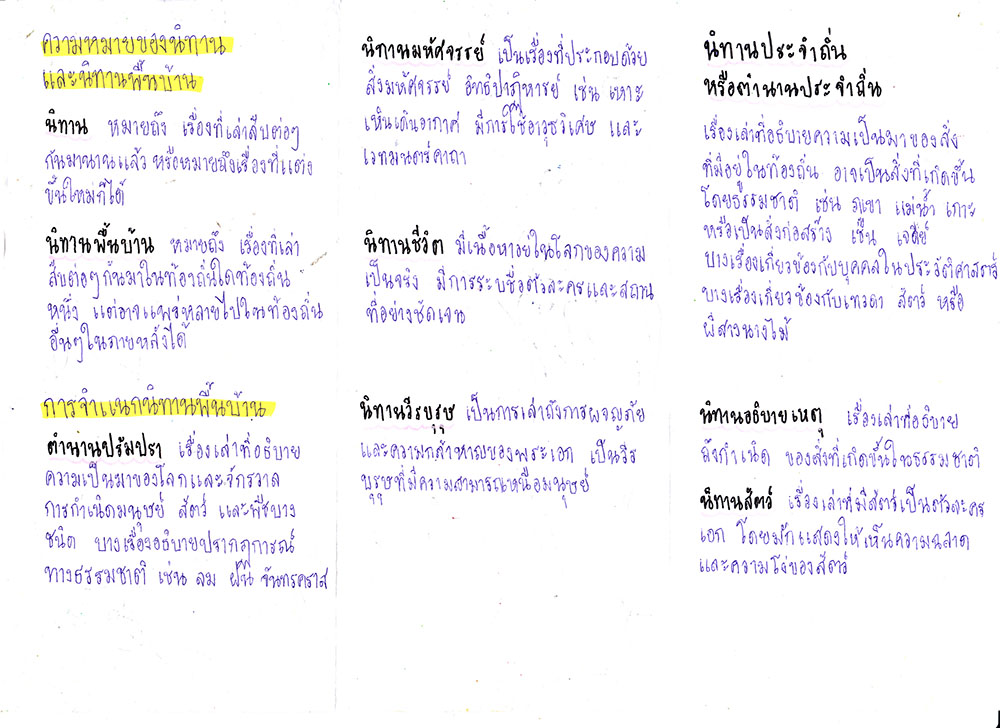 ความหมายของนิทาน
และนิทานพื้นบ้าน
นิทาน หมายถึง เรื่องที่เล่าสืบต่อๆ
กันมานานแล้ว หรือหมายถึงเรื่องที่แต่ง
ขึ้นใหม่ก็ได้
นิทานพื้นบ้าน หมายถึง เรื่องที่เล่า
สืบต่อๆกันมาในท้องถิ่นใดท้องถิ่น
หนึ่ง แต่อาจแพร่หลายไปในท้องถิ่น
อื่นๆในภายหลังได้
การจำแนกนิทานพื้นบ้าน
ตำนานปรัมปรา เรื่องเล่าที่อธิบาย
ความเป็นมาของโลกและจักรวาล
การกำเนิดมนุษย์ สัตว์ และพืชบาง
ชนิด บางเรื่องอธิบายปรากฏการณ์
ทางธรรมชาติ เช่น ลม ฝน จันทรคราส
นิทานมหัศจรรย์ เป็นเรื่องที่ประกอบด้วย
สิ่งมหัศจรรย์ อิทธิปาฏิหารย์ เช่น เหาะ
เหินเดินอากาศ มีการใช้อาวุธวิเศษ และ
เวทมนตร์คาถา
นิทานชีวิต มีเนื้อหาอยู่ในโลกของความ
เป็นจริง มีการระบุชื่อตัวละครและสถาน
ที่อย่างชัดเจน
นิทานวีรบุรุษ เป็นการเล่าถึงการผจญภัย
และความกล้าหาญของพระเอก เป็นวีร
บุรุษที่มีความสามารถเหนือมนุษย์
นิทานประจำถิ่น
หรือตำนานประจำถิ่น
เรื่องเล่าที่อธิบายความเป็นมาของสิ่ง
ที่มีอยู่ในท้องถิ่น อาจเป็นสิ่งที่เกิดขึ้น
โดยธรรมชาติ เช่น ภูเขา แม่น้ำ เกาะ
หรือเป็นสิ่งก่อสร้าง เช่น เจดีย์
บางเรื่องเกี่ยวข้องกับบุคคลในประวัติศาสตร์
บางเรื่องเกี่ยวข้องกับเทวดา สัตว์ หรือ
ผีสางนางไม้
นิทานอธิบายเหตุ เรื่องเล่าที่อธิบาย
ถึงกำเนิด ของสิ่งที่เกิดขึ้นในธรรมชาติ
นิทานสัตว์ เรื่องเล่าที่มีสัตว์เป็นตัวละคร
เอก โดยมักแสดงให้เห็นความฉลาด
และความโง่ของสัตว์